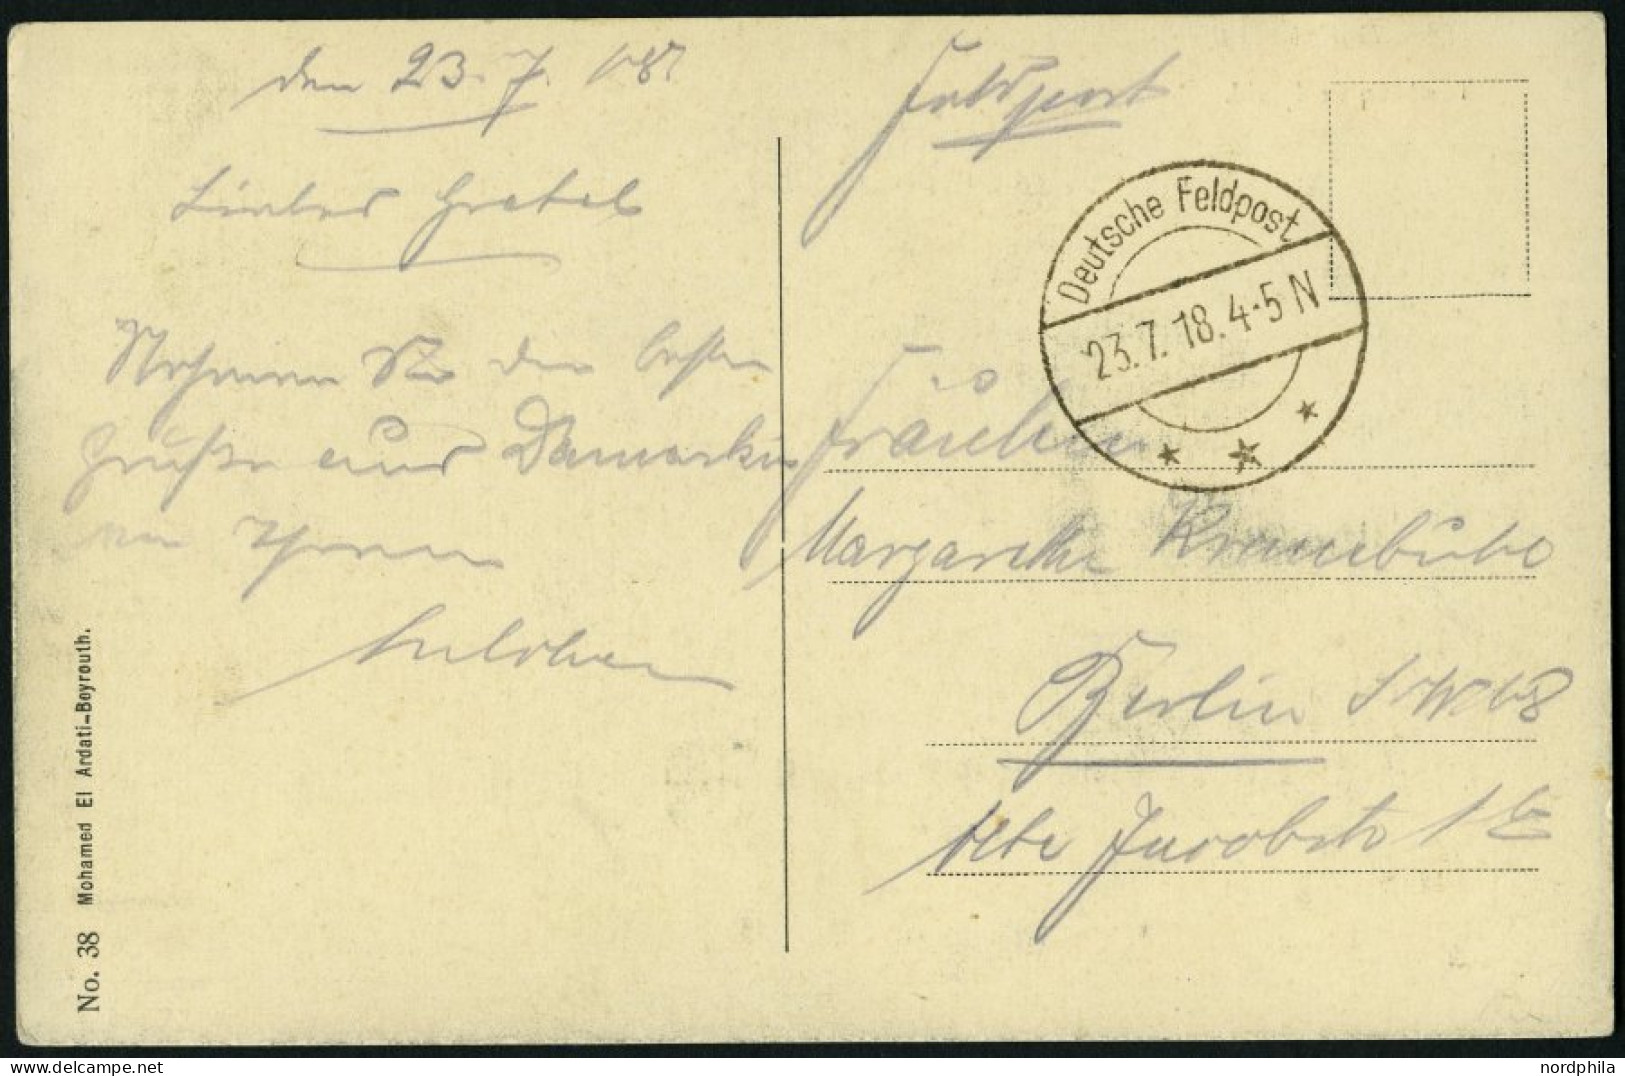 den 23. 7. 18.
Liebes Gretel
Nehmen Sie die besten
Grüße aus Damaskus
von Ihrem
Feldpost
Deutsche Feldpost
23.7.18.4-5 N
Fräulein
Margarethe
Berlin SW 68
Alte Jacobstr 1
No. 38 Mohamed El Ardati-Beyrouth.
nordphila